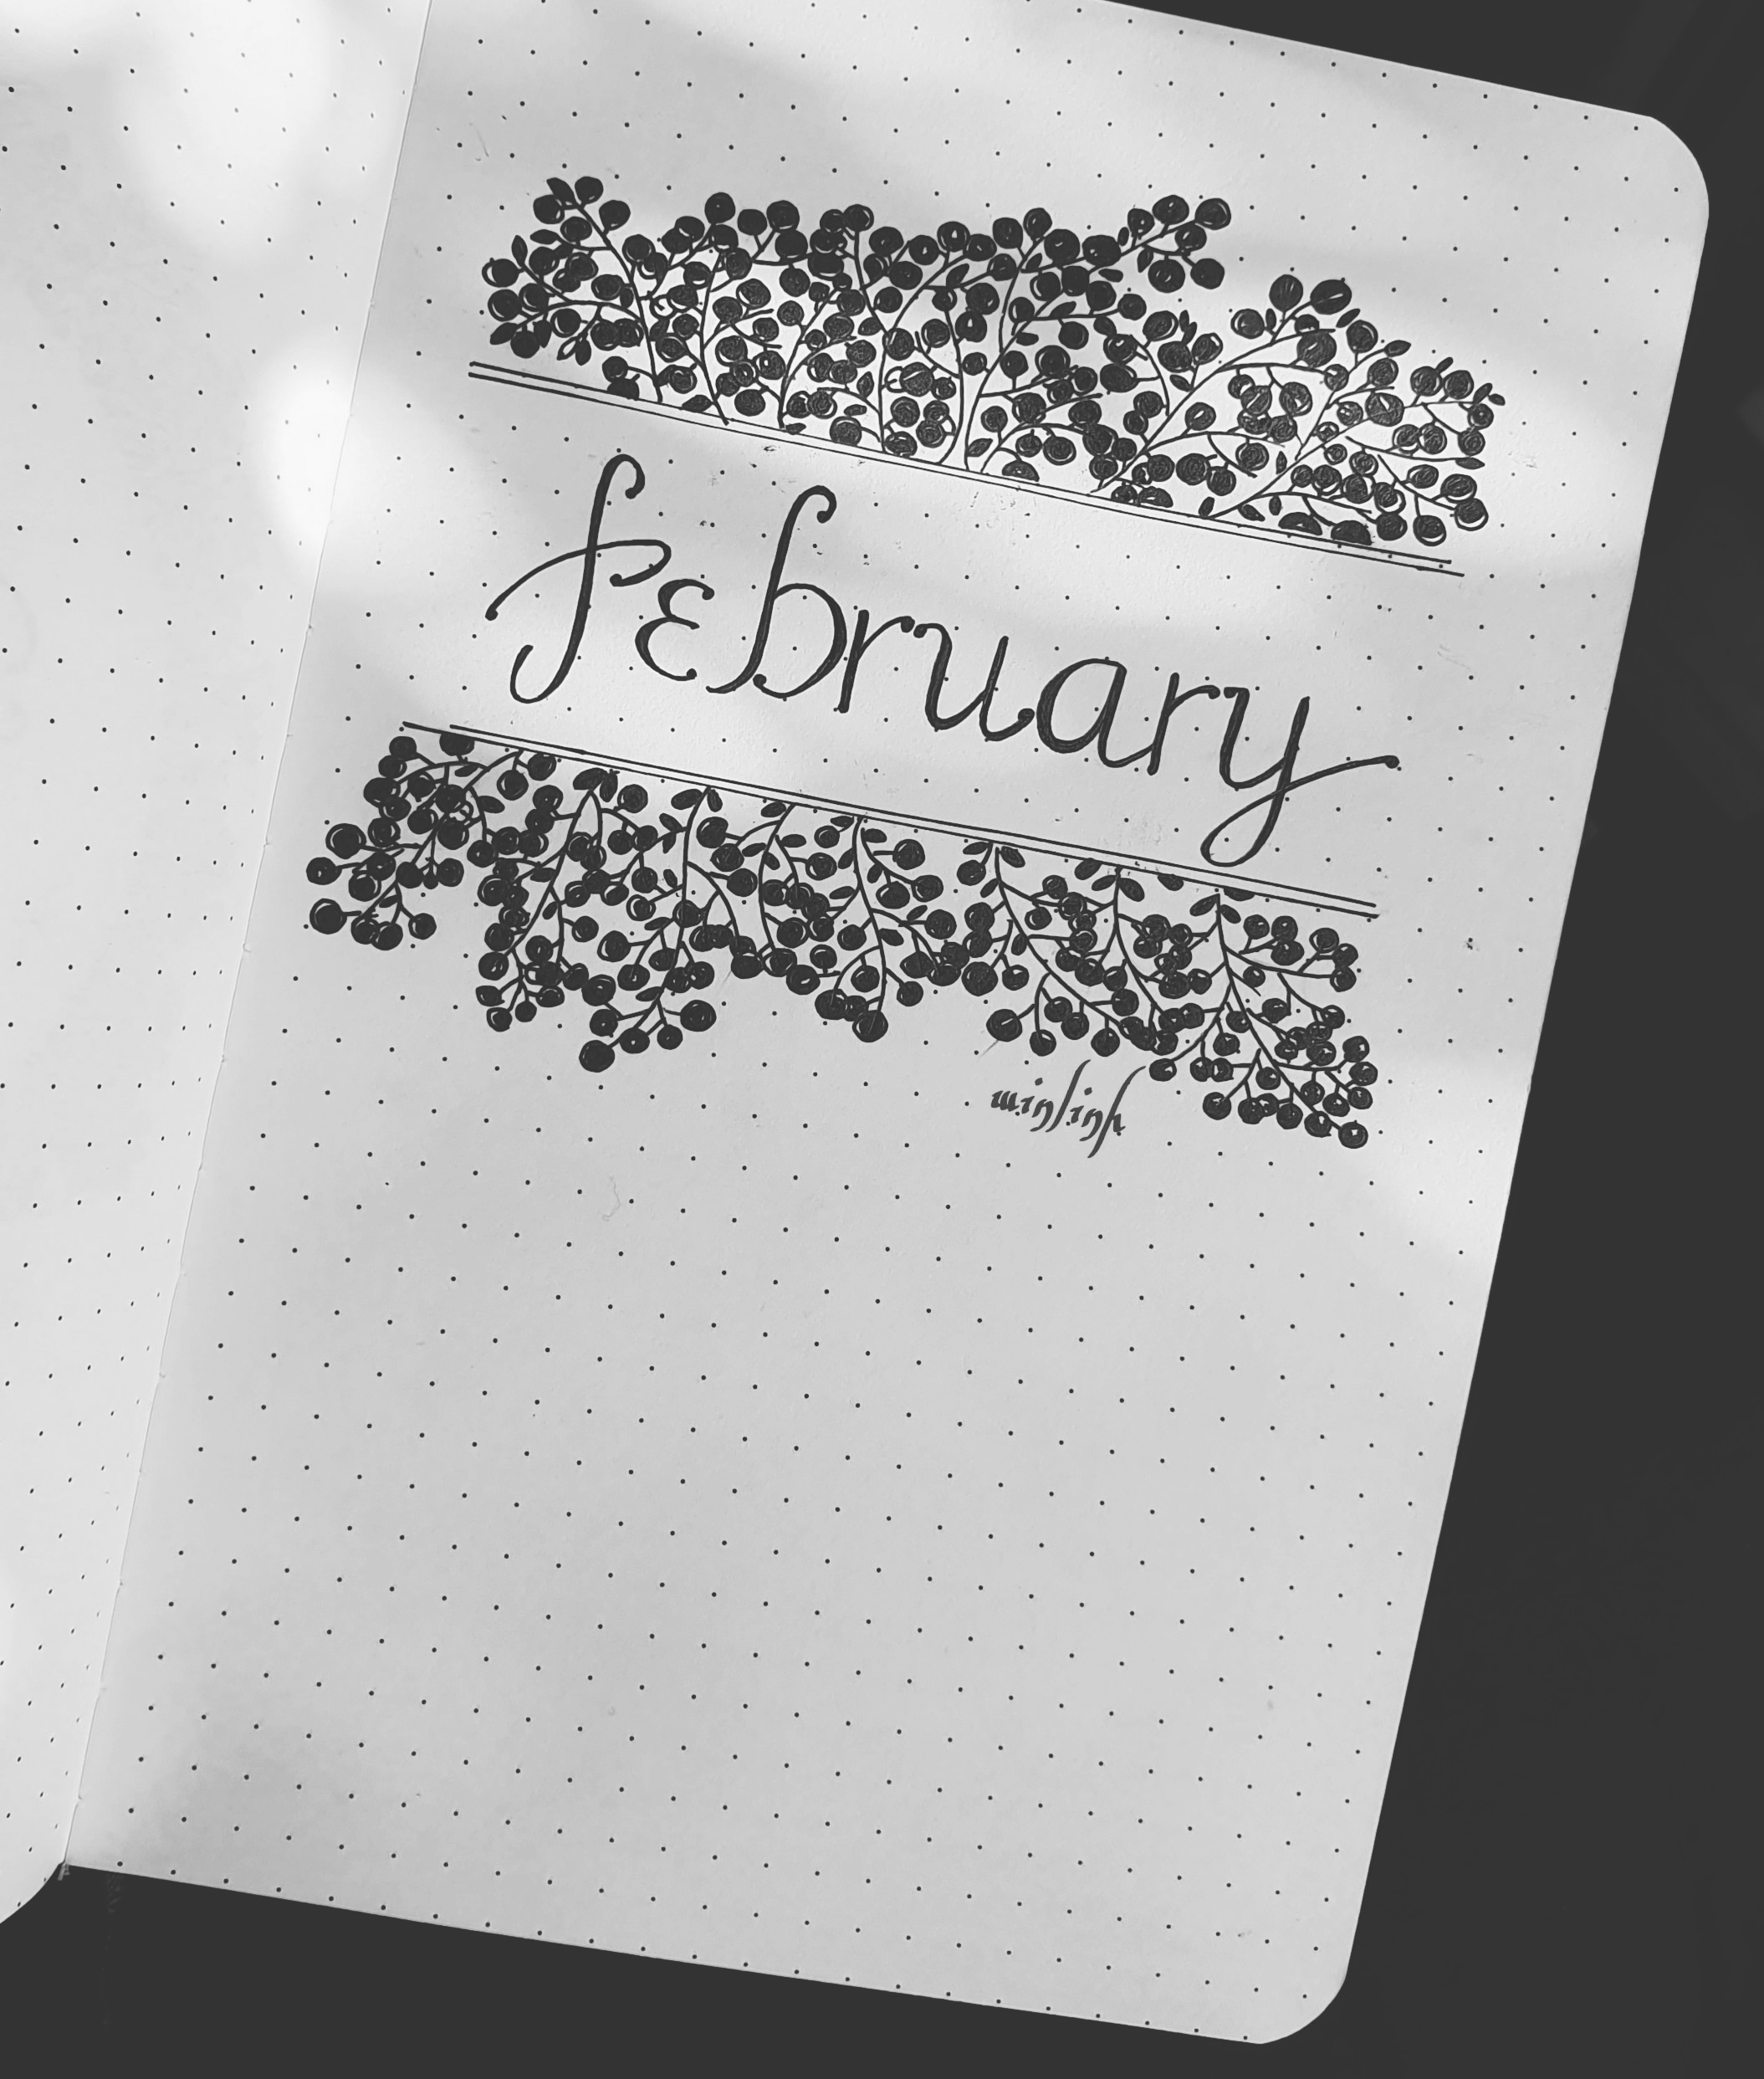 february
minlinh